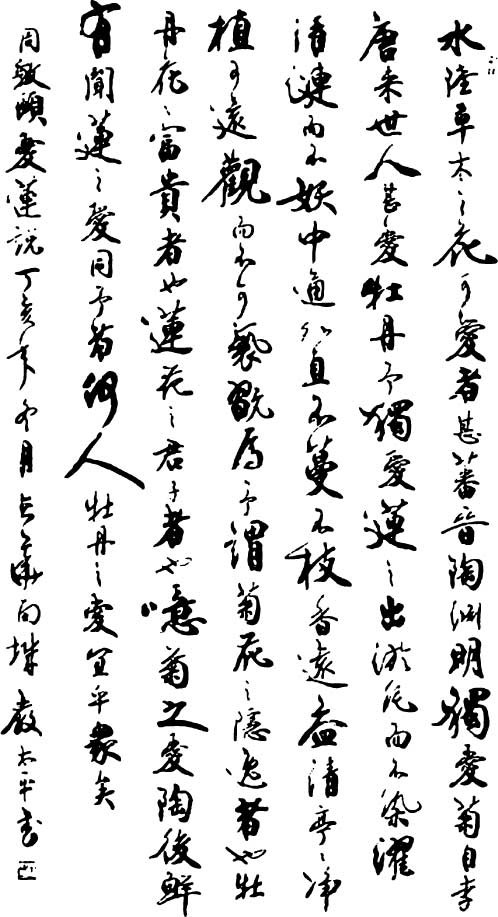 水陸草木之花可愛者甚蕃晉陶淵明獨愛菊自李
唐来世人甚愛牡丹予獨愛蓮之出淤泥而不染濯
清漣而不妖中通外直不蔓不枝香遠益清亭々净
植可遠觀而不可褻翫焉予謂菊花之隱逸者也牡
丹花之富貴者也蓮花之君子者也噫菊之愛陶後鮮
有聞蓮之愛同予者何人牡丹之愛宜乎衆矣
周敦頤愛蓮説丁亥年冬月太平书